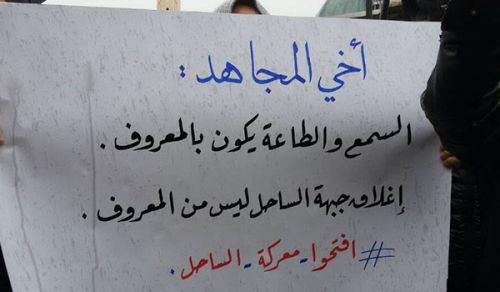 أخي المجاهد :
السمع والطاعة يكون بالمعروف .
إغلاق جبهة الساحل ليس من المعروف .
# افتحوا - معركة - الساحل .